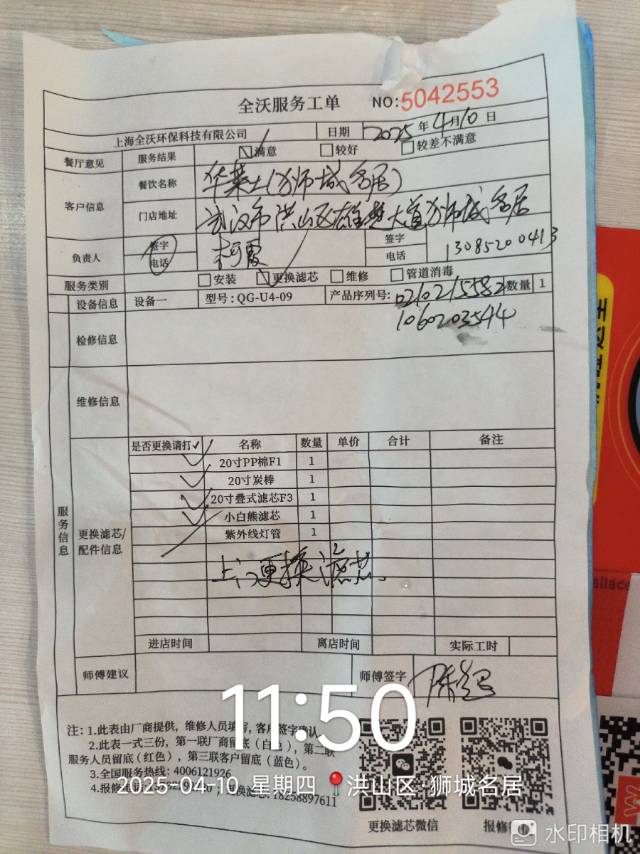 全沃服务工单 NO:5042553
上海全沃环保科技有限公司 日期 2025年4月10日
餐厅意见 服务结果 满意 较好 较差不满意
客户信息 餐饮名称 华莱士(狮城名居)
门店地址 武汉市洪山区雄楚大道狮城名居
负责人 签字 电话 柯霞 签字 电话 13085200413
服务类别 安装 更换滤芯 维修 管道消毒
设备信息 设备一 型号:QG-U4-09 产品序列号: 数量 1
1060203544
检修信息
维修信息
服务信息
更换滤芯/配件信息
是否更换请打✓ 名称 数量 单价 合计 备注
20寸PP棉F1 1
20寸炭棒 1
20寸叠式滤芯F3 1
小白熊滤芯 1
紫外线灯管 1
上门更换滤芯
进店时间 离店时间 实际工时
师傅建议 师傅签字
11:50
注:1.此表由厂商提供,维修人员填写,客户签字确认
2.此表一式三份,第一联厂商留底(白色),第二联
服务人员留底(红色),第三联客户留底(蓝色)。
3.全国服务热线:4006121926
4.报修 18258897611
2025-04-10 星期四 洪山区·狮城名居
更换滤芯微信 报修
水印相机